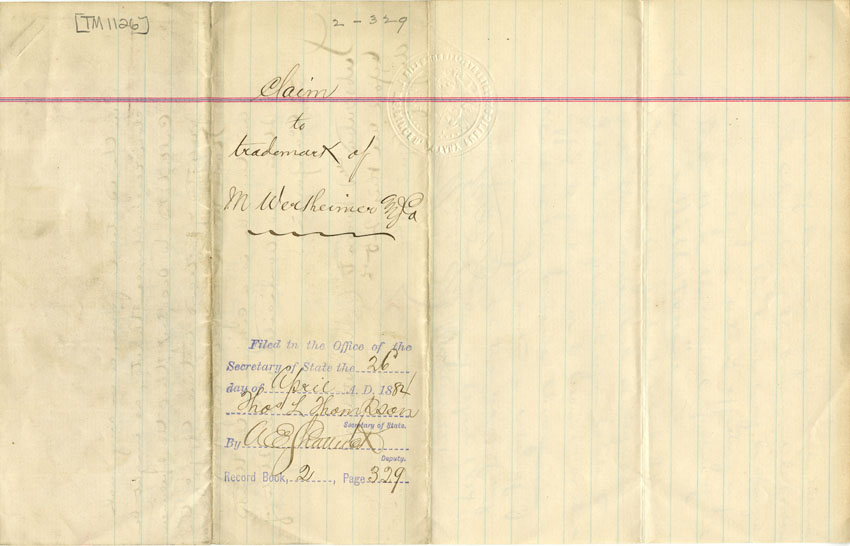 [TM 1126]
2-329
Claim
to
trademark of
M Wertheimer & Co
Filed in the Office of the
Secretary of State the 26
day of April A. D. 1884
Thos L Thompson
Secretary of State.
By
Deputy.
Record Book, 2, Page 329